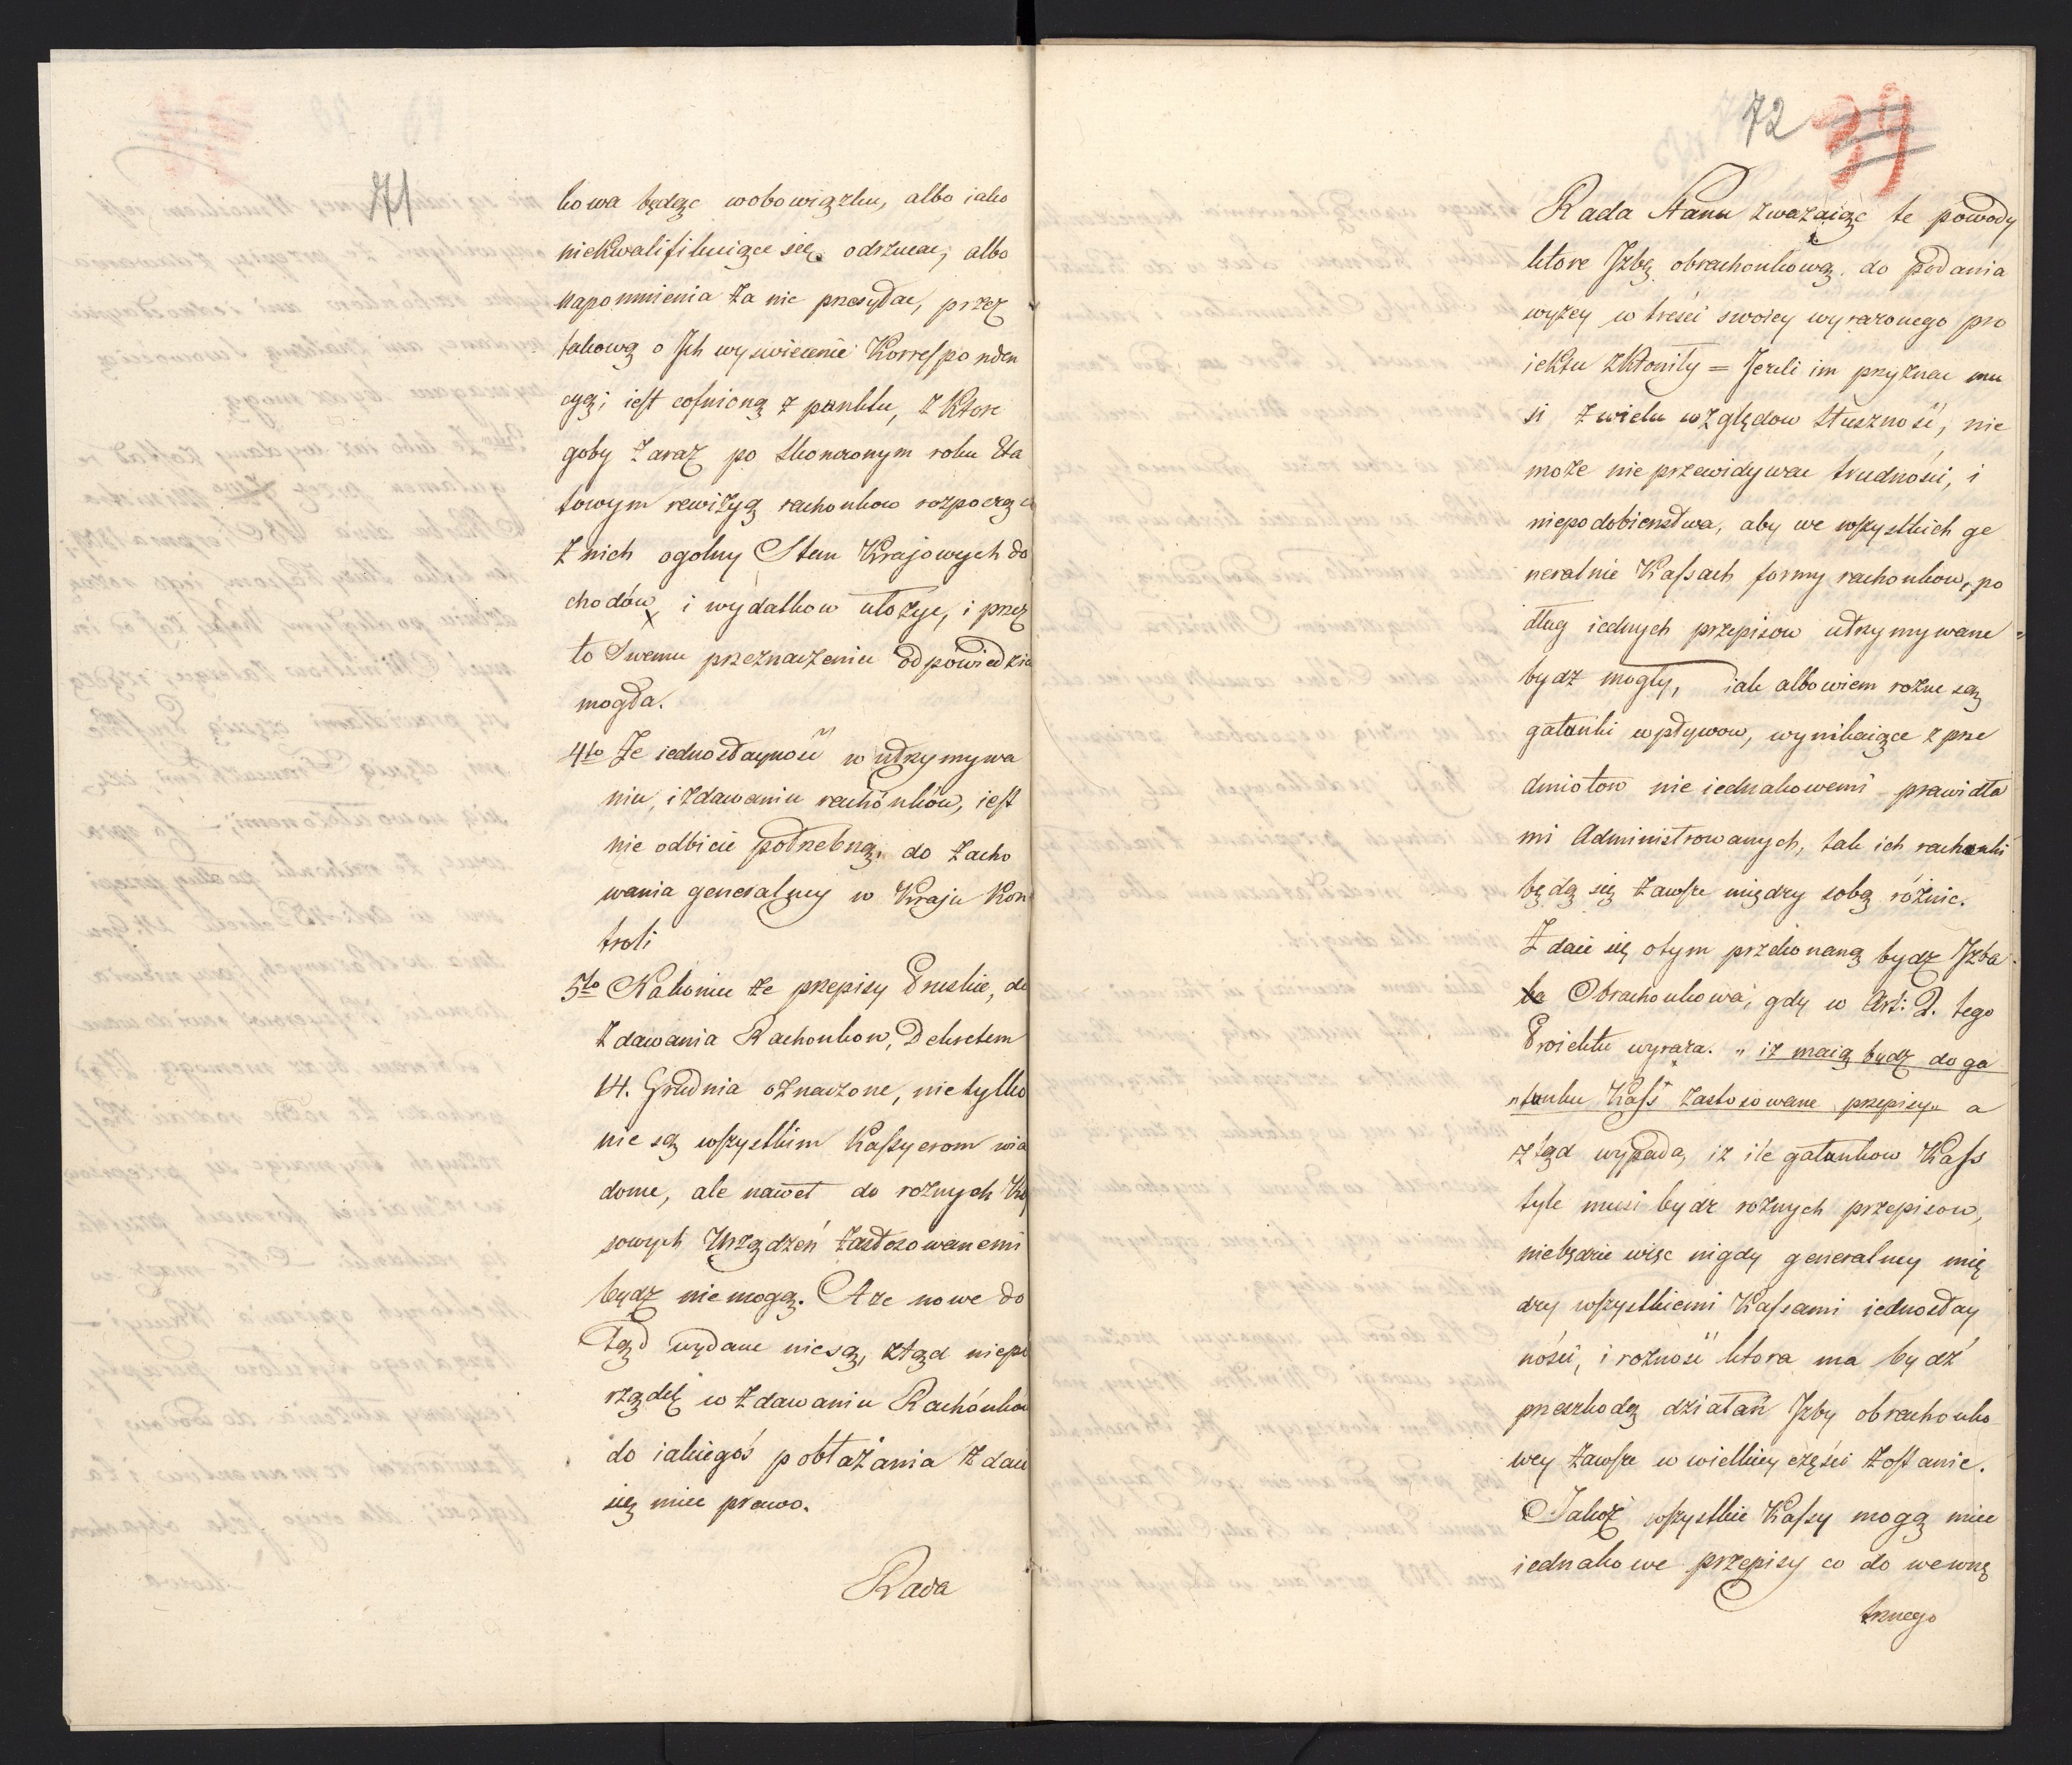 71
kowa będąc wobowiązku, albo iako
niekwalifikuiące się odrzucac, albo
napomnienia za nie przesyłac, przez
takową o Jch wyswiecenie Korrespondén
cyą; iest cofnioną z punktu, z Ktore
goby zaraz po skonczonym roku Eta
towym rewizyą rachonkow rozpocząc
z nich ogolny Stan Krajowych do
chodów, i wydatkow ułożyc, i przez
to Swemu przeznaczeniu odpowiedziec
mogła.
4to Ze iednostaynosć w utrzymywa
niu, i zdawaniu rachónków, iest
nie odbicie potrzebną, do zacho
wania generalney w Kraju Kon
troli
5to Nakoniec ze przepisy Pruskie, do
zdawania Rachonkow, Dekretem
14. Grudnia oznaczone, nie tylko
nie są wszystkim Kassyerom wia
dome, ale nawet do roznych Kas
sowych Urządzeń zastosowanemi
bydź niemogą. A ze nowe do
tąd wydane niesą, ztąd niepo
rządek w zdawaniu Rachónków
do iakiegoś pobłażania zdaie
się miec prawo.
Rada
72 39
Rada Stanu zważaiąc te powody
ktore Jzbę obrachonkową do podania
wyżey w treści swoiey wyrazonego pro
iektu skłoniły = Jezeli im przyznac mu
si z wielu względow słuszność, nie
może nie przewidywac trudności, i
niepodobienstwa, aby we wszystkich ge
neralnie Kassach formy rachonkow, po
dług iednych przepisow utrzymywane
bydz mogły, iak albowiem rozne są
gatunki wpływow, wynikaiące z prze
dmiotow nie iednakowemi prawidła
mi Administrowanych, tak ich rachunki
będą się zawsze między sobą różnic.
Zdaie się otym przekonaną bydz Jzba
ba Obrachonkowa, gdy w Art: 2. tego
Proiektu wyraza. „ iz maią bydz do ga
„tunku Kass zastosowane przepisy„ a
ztąd wypada, iz ile gatunkow Kass
tyle musi bydz roznych przepisow,
niebędzie więc nigdy generalney mię
dzy wszystkiemi Kassami iednostay
ności, i roznosć ktora ma bydź
przeszkodą działań Jzby obrachonko
wey zawsze w wielkiey części zostanie.
Jakoż wszystkie Kassy mogą miec
iednakowe przepisy co do wewnę
trznego